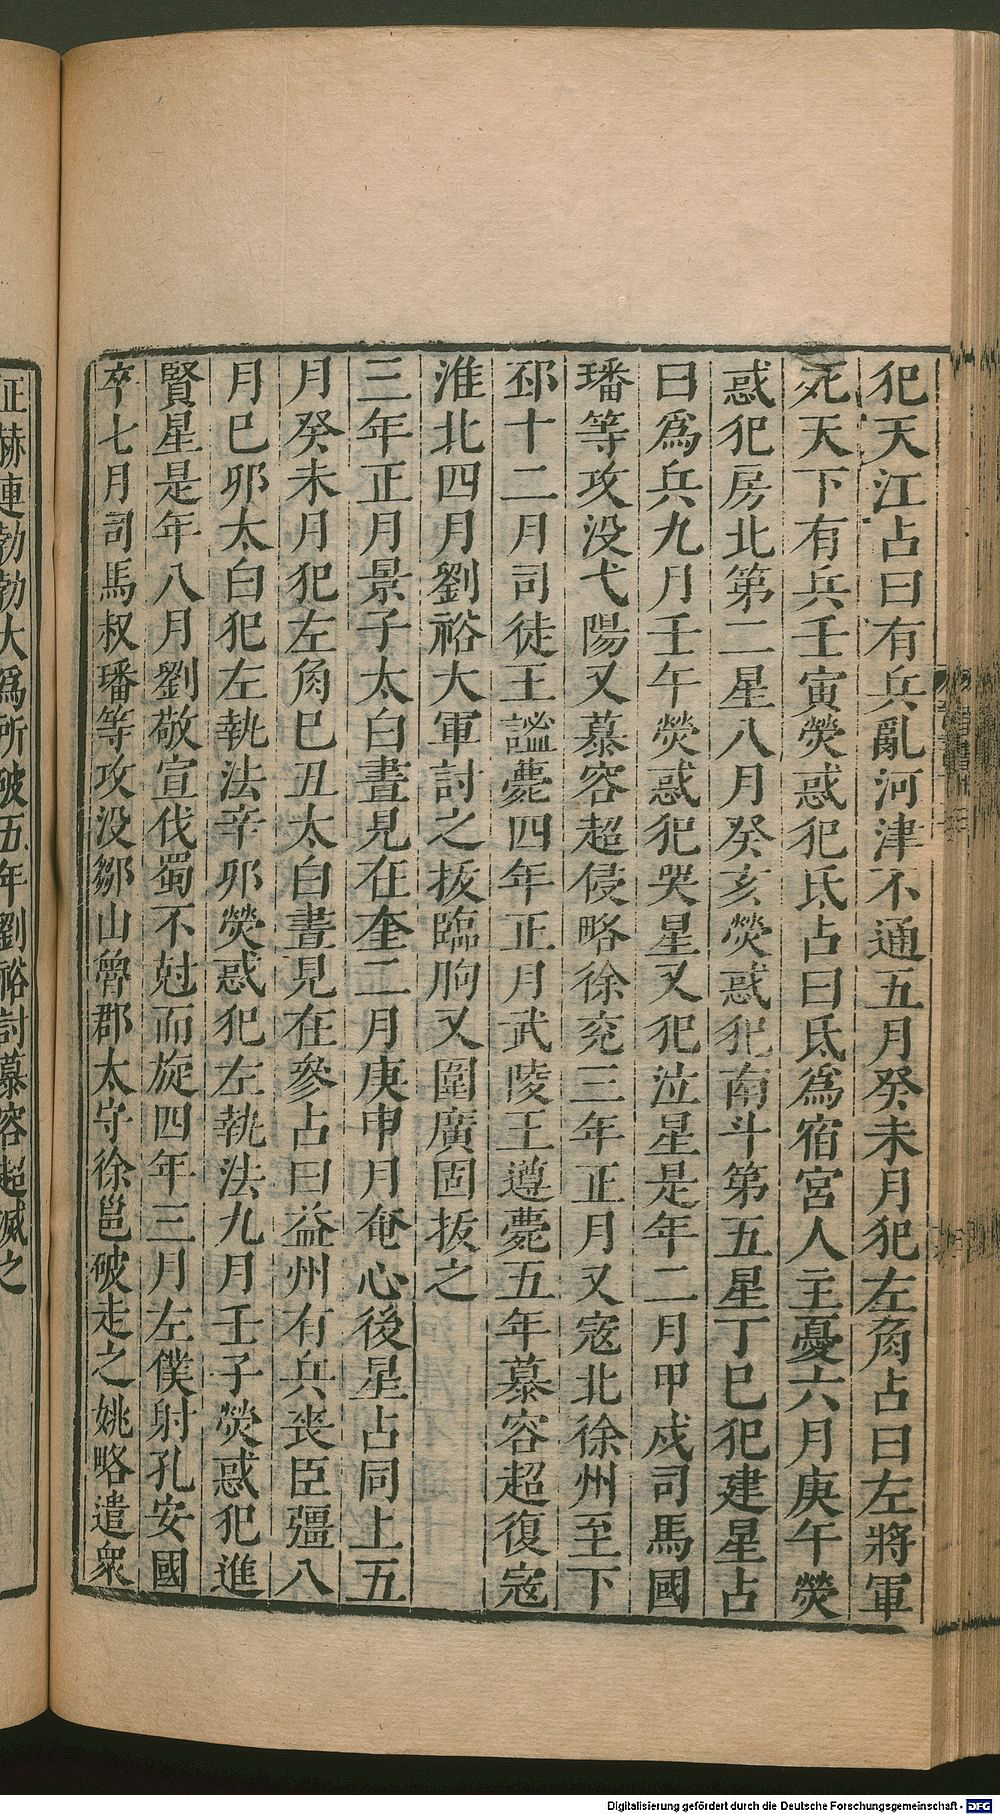 犯天江占曰有兵亂河津不通五月癸未月犯左角占曰左將軍
死天下有兵壬寅熒惑犯氐占曰氐爲宿宮人主憂六月庚午熒
惑犯房北第二星八月癸亥熒惑犯南斗第五星丁巳犯建星占
曰爲兵九月壬午熒惑犯哭星又犯泣星是年二月甲戍司馬國
璠等攻没弋陽又慕容超侵略徐兖三年正月又寇北徐州至下
邳十二月司徒王謐薨四年正月武陵王遵薨五年慕容超復寇
淮北四月劉裕大軍討之拔臨朐又圍廣固拔之
三年正月景子太白晝見在奎二月庚申月奄心後星占同上五
月癸未月犯左角巳丑太白晝見在參占曰益州有兵丧臣彊八
月巳夘太白犯左執法辛夘熒惑犯左執法九月壬子熒惑犯進
賢星是年八月劉敬宣伐蜀不尅而旋四年三月左僕射孔安國
卒七月司馬叔璠等攻没鄒山魯郡太守徐邕破走之姚略遣衆
征赫連勃勃大爲所破五年劉裕討慕容超滅之
Digitalisierung gefördert durch die Deutsche Forschungsgemeinschaft - DFG